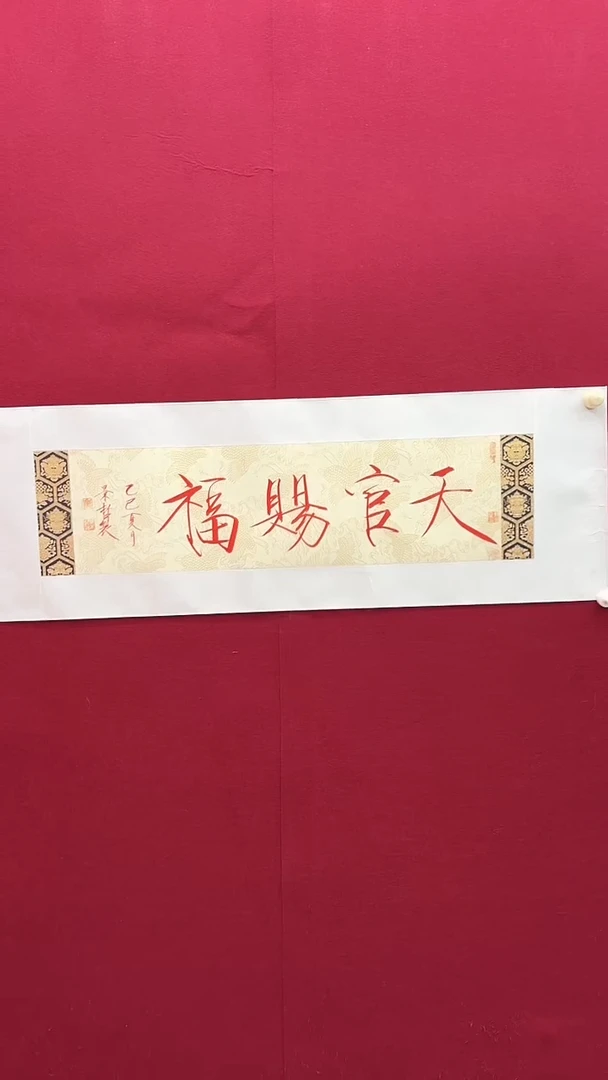 天官賜福
乙巳夏月